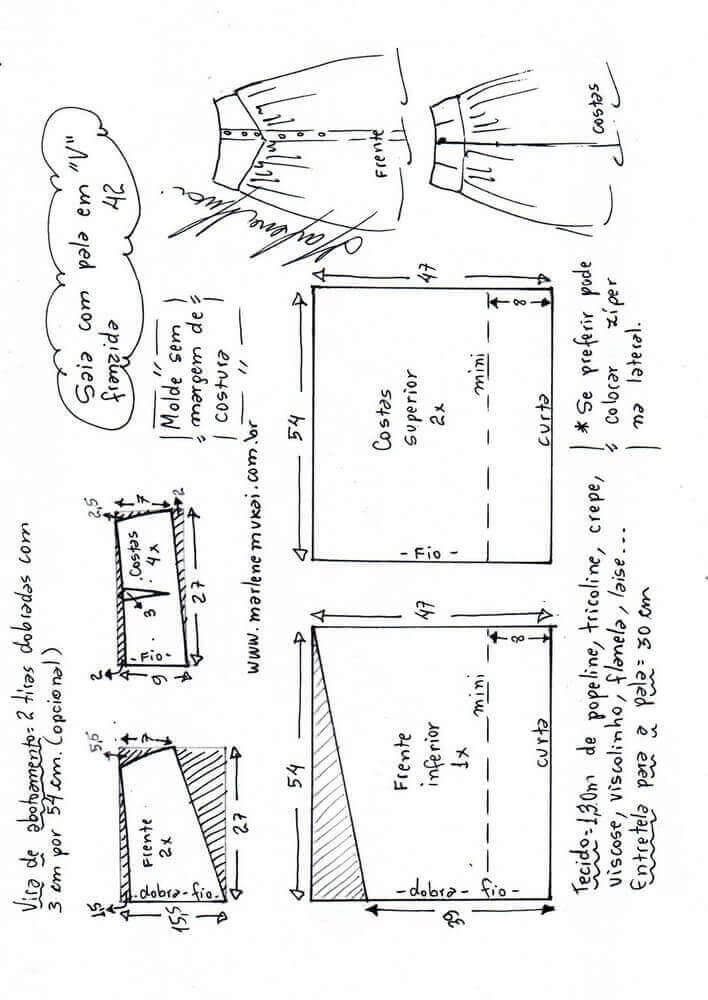 Saia com pala em "V"
franzida 42
"Molde sem
margem de
costura"
Vira de abotoamento = 2 tiras dobradas com
3 cm por 54 cm. (opcional)
1,5
5,5
7
Frente
2x
15,5
-dobra-fio-
27
2
2,5
7
Costas
4x
3
9
-Fio-
2
27
www.marlenemukai.com.br
Frente
Costas
54
47
Frente
inferior
1x
mini
8
curta
-dobra-fio-
39
54
47
Costas
superior
2x
mini
8
curta
-Fio-
Tecido = 1,30m de popeline, tricoline, crepe,
viscose, viscolinho, flanela, laise...
Entretela para a pala = 30 cm
* Se preferir pode
colocar zíper
na lateral.